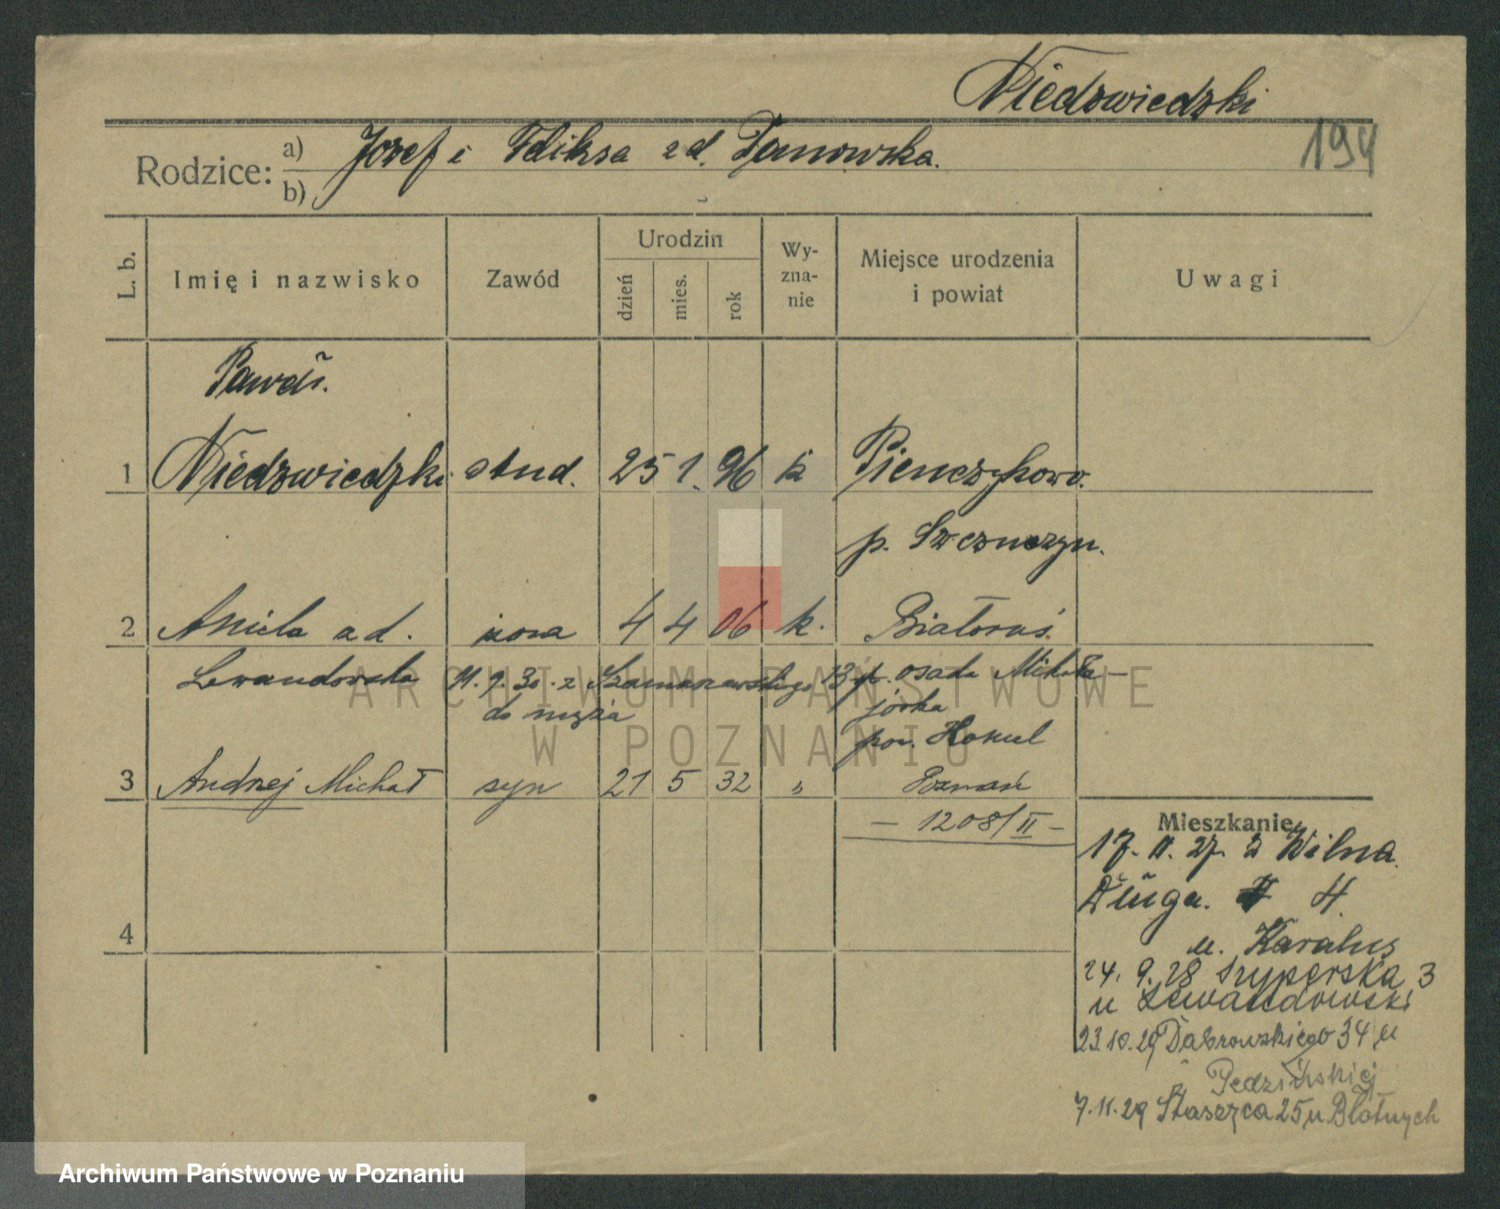 Niedzwiedzki
194
Rodzice: a) Jozef i Feliksa zd. Janowska.
b)
L. b. Imię i nazwisko Zawód Urodzin dzień mies. rok Wy-zna-nie Miejsce urodzenia i powiat Uwagi
Paweł.
1 Niedzwiedzki stud. 25 1. 96 k Pienczykowo.
p. Szczuczyn.
2 Aniela zd. żona 4 4 06 k. Białoruś.
Lewandowska 11. 9. 30. z Szamarzewskiego 13 p. osada Mikoła-
do męża jówka
pow. Homel
3 Andrzej Michał syn 21 5 32 " Poznań
– 1208/II –
4
Mieszkanie
17. 11. 27. z Wilna.
Długa. 4.
u. Karalus
24. 9. 28 Szyperska 3
u Lewandowski
23.10.29 Dąbrowskiego 34 u
Pedzińskiej
7.11.29 Staszyca 25 u Błotnych
ARCHIWUM PAŃSTWOWE
W POZNANIU
Archiwum Państwowe w Poznaniu